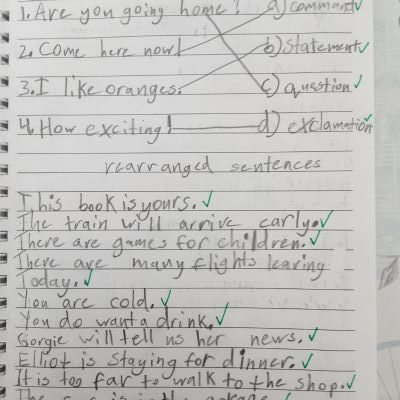 1. Are you going home? a) command
2. Come here now! b) statement
3. I like oranges. c) question
4. How exciting! d) exclamation
rearranged sentences
This book is yours.
The train will arrive early.
There are games for children.
There are many flights learing
Today.
You are cold.
You do want a drink.
Gorgie will tell us her news.
Elliot is staying for dinner.
It is too far to walk to the shop.